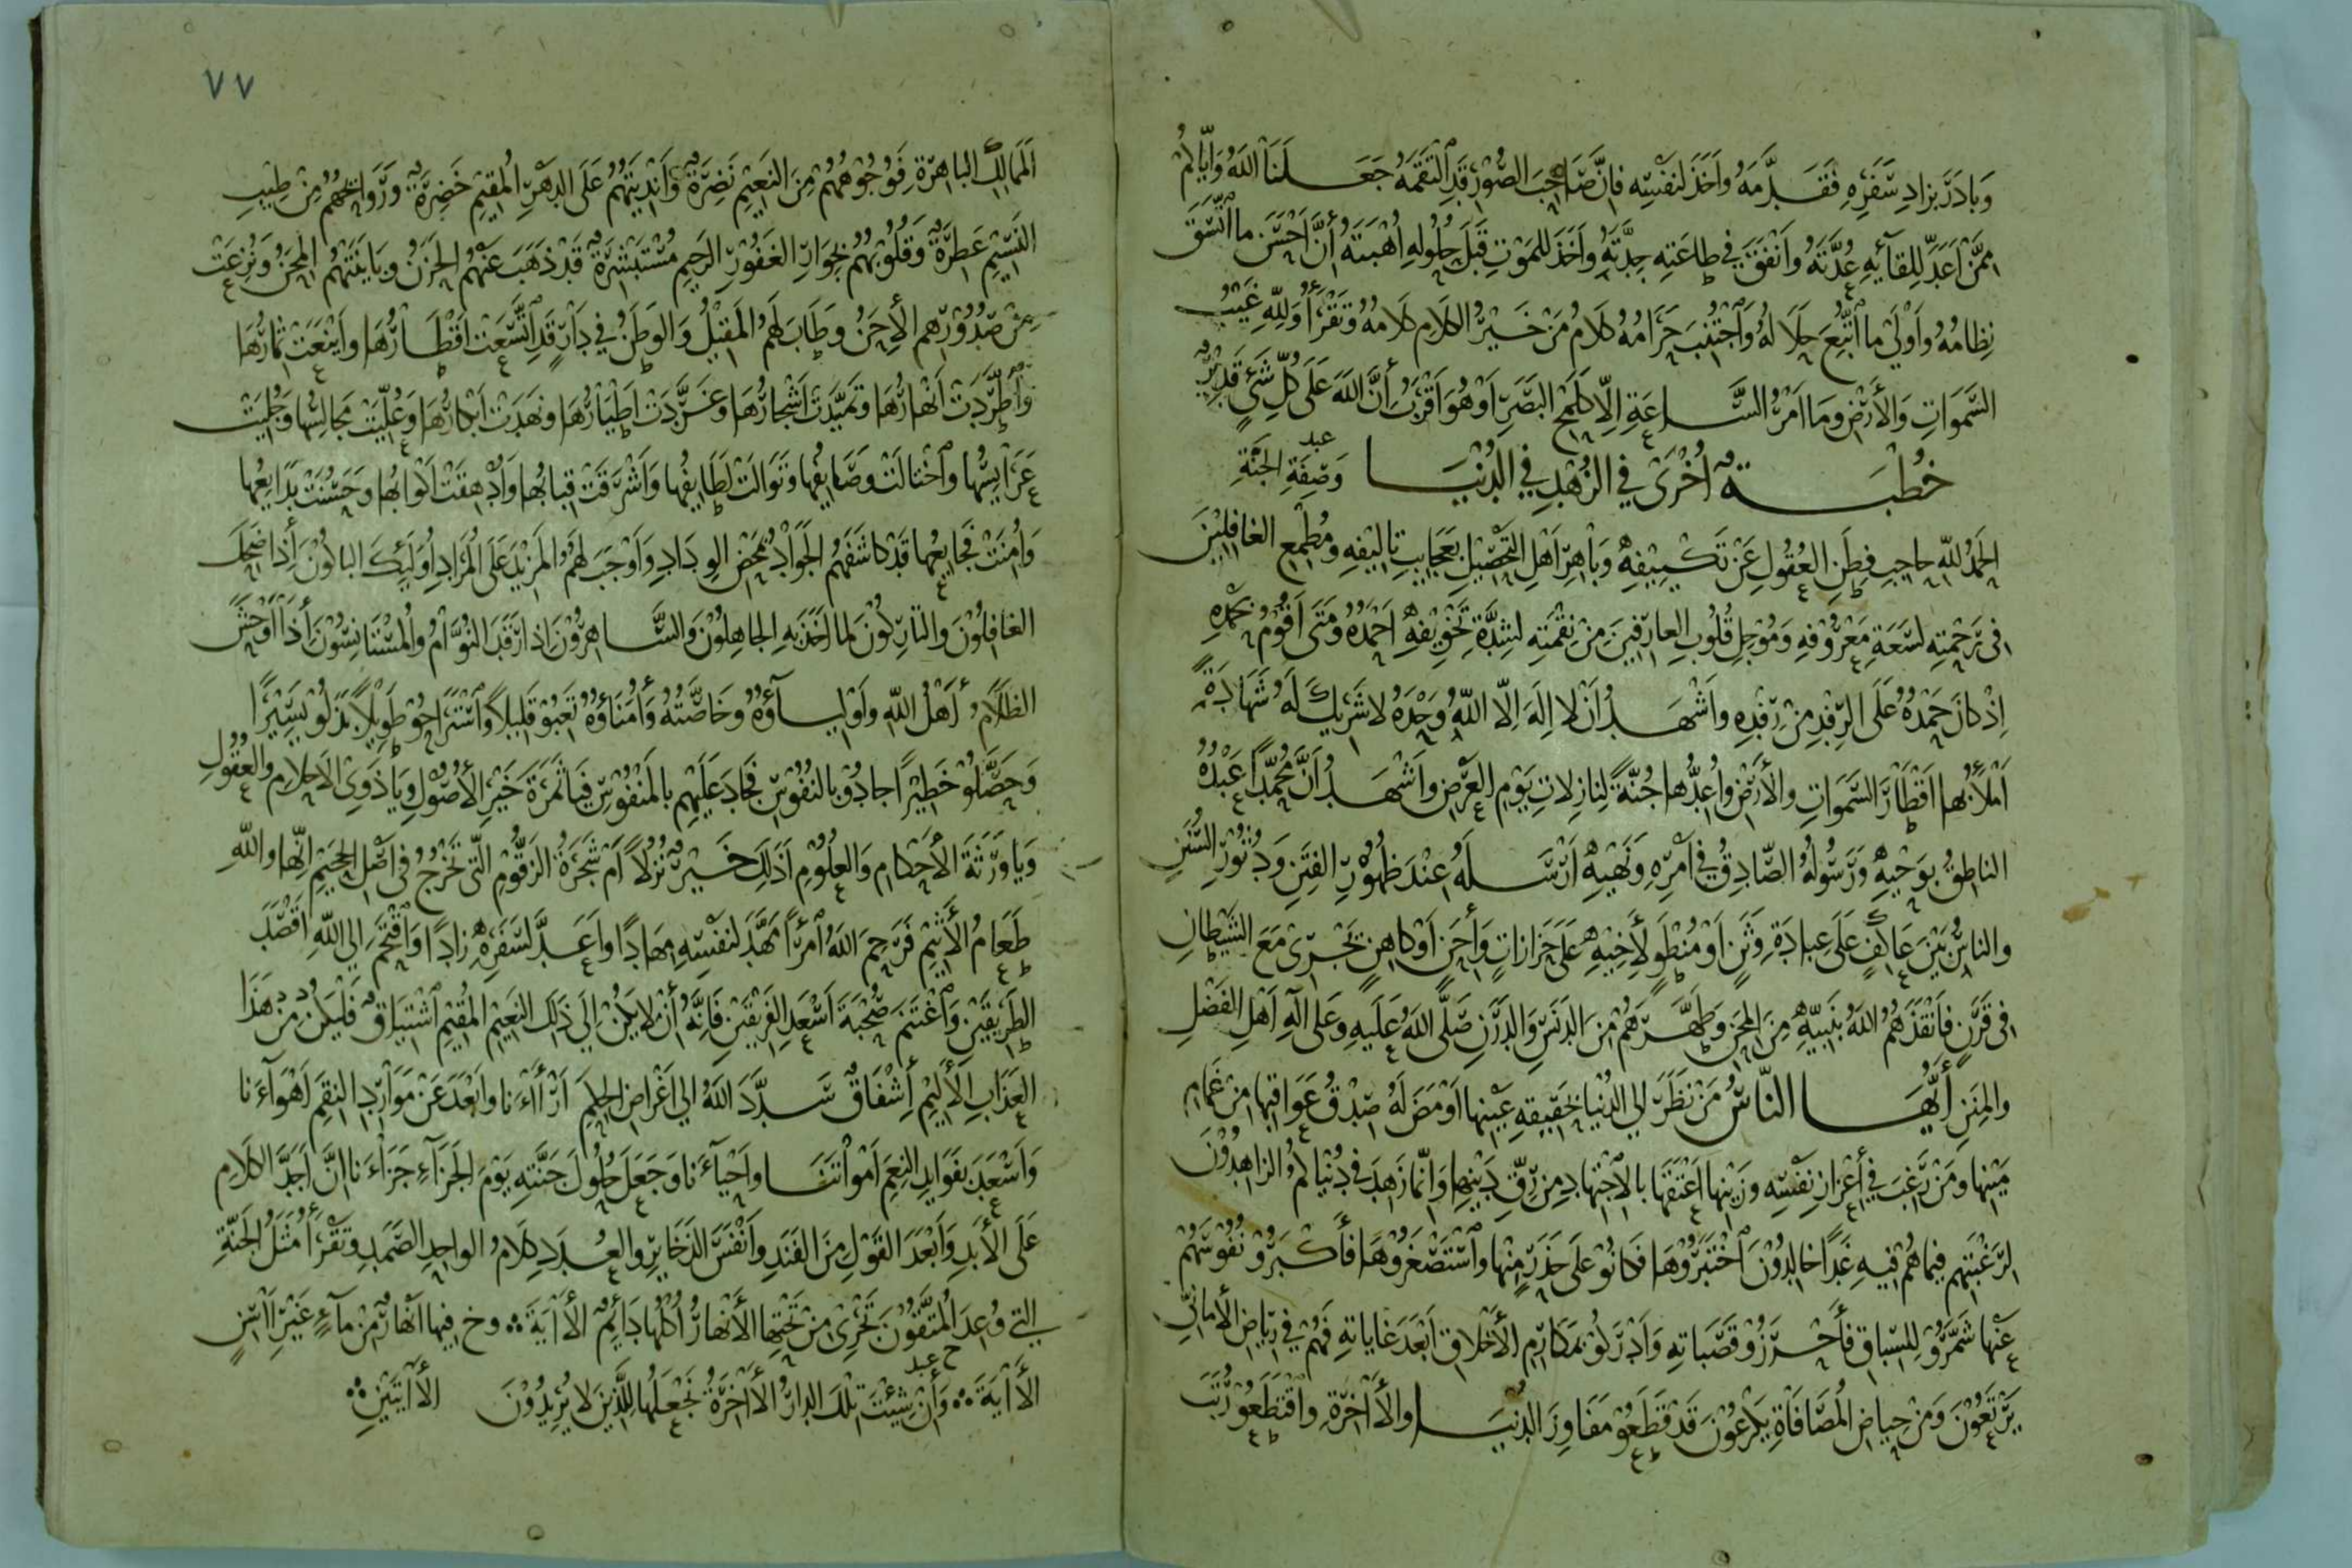 وَبَادَرَ بِزَادِ سَفَرِهِ فَقَدَّمَهُ وَاَخَذَ لنَفْسِه فَاِنَّ صَاحِبَ الصُّوْرِ قَدِ الْتَقَمَهُ جَعَلَنَا اللهُ وَاِيَّاكُمْ
مِمَّنْ اَعَدَّ لِلِقَآئِهِ عُدَّتَهُ وَاَنْفَقَ في طَاعَتِه جِدَّتَهُ وَاَخَذَ لِلمَوْتِ قَبْلَ حُلُولِهِ اُهْبَتَهُ أَنَّ اَحْسَنَ ما اتَّسَقَ
نِظَامُهُ وَاَوْلَىٰ ما اتُّبِعَ حَلَالُهُ وَاجْتُنِبَ حَرَامُهُ كَلَامُ مَنْ خَيْرُ الكَلَامِ كَلَامُهُ وَتَقْرَأُ وَلِلّهِ غَيْبُ
السَّمَوَاتِ وَالأَرْضِ وَمَا اَمْرُ السَّاعَةِ اِلّا كَلَمْحِ البَصَرِ اَوْ هُوَ اَقْرَبُ أَنَّ اللهَ عَلَى كُلِّ شَيْءٍ قَدِيْرٌ
خُطْبَةٌ اُخْرَىٰ فِي الزُهْدِ فِي الدُنْيَا وَصِفَةِ الجَنَّةِ
الحَمْدُ لِلّهِ حَاجِبِ فِطَنِ العُقُولِ عَنْ تَكْيِيْفِهِ وَبَاهِرِ اَهْلِ التَحْصِيْلِ بِعَجَايِبِ تَالِيْفِهِ وَمُطْمِعِ الغَافِلِيْنَ
فِى رَحْمَتِهِ لِسَعَةِ مَعْرُوْفِهِ وَمُوْجِلِ قُلُوْبِ العَارِفِيْنَ مِنْ نِقْمَتِه لِشِدَّةِ تَخْوِيْفِهِ اَحْمَدُهُ وَمَتَى اَقُوْمُ بحَمْدِهِ
اِذْ كَانَ حَمْدُهُ عَلَى الرِفْدِ مِنْ رِفْدِهِ وَاَشْهَدُ اَنْ لَا اِلَهَ اِلَّا اللهُ وَحْدَهُ لا شَرِيْكَ لَهُ شَهَادَةً
اَمْلَأُ بِهَا اَقْطَارَ السَّمَوَاتِ وَالأَرْضِ وَاُعِدُّهَا جُنَّةً لِنَازِلَاتِ يَوْمِ العَرْضِ وَاَشْهَدُ اَنَّ مُحَمَّداً عَبْدُهُ
النَاطِقُ بِوَحْيِهِ وَرَسُوْلُهُ الصَّادِقُ فِي اَمْرِهِ وَنَهْيِهِ اَرْسَلَهُ عِنْدَ ظُهُوْرِ الفِتَنِ وَدُثُوْرِ السُّنَنِ
وَالنَاسُ بَيْنَ عَاكِفٍ عَلَى عِبَادَةِ وَثَنٍ اَوْ مُنْطَوٍ لأَخِيْهِ عَلَى حَزَازَاتٍ وَأَحَنٍ اَوْ كَاهِنٍ يَجْرِىْ مَعَ الشَيْطَانِ
فِى قَرَنٍ فَاَنْقَذَهُمُ اللهُ بِنَبِيِّهِ مِنَ المِحَنِ وَطَهَّرَهُمْ مِنَ الدَنَسِ وَالدَرَنِ صَلَّى اللهُ عَلَيهِ وَعَلَى آلِهِ اَهْلِ الفَضْلِ
وَالمِنَنِ أَيُّهَا النَّاسُ مَنْ نَظَرَ اِلَي الدُنْيَا بِحَقِيقَةِ عَيْنِهَا اَوْمَضَ لَهُ صِدْقُ عَوَاقِبِهَا مِنْ غَمَامِ
مَيْنِهَا وَمَنْ رَغِبَ فِي أَعْزَازِ نَفْسِه وَزَيْنِهَا اَعْتَقَهَا بِالاِجْتِهَادِ مِنْ رِقِّ دَيْنِهَا وَاِنَّمَا زَهِدَ فِي دُنْيَاكُمُ الزَاهِدُوْنَ
لِرَغْبَتِهِم فِيمَا هُمْ فِيهِ غَداً خَالِدُوْنَ اخْتَبَرُوْهَا فَكَانُوْ عَلَى حَذَرٍ مِنْهَا وَاسْتَصْغَرُوْهَا فَأَكْبَرُوْ نُفُوْسَهُمْ
عَنْهَا شَمَّرُوْ لِلسِّبَاقِ فَأَحْرَزُوْ قَصَبَاتِهِ وَاَدْرَكُوْ بِمَكَارِمِ الأَخْلَاقِ اَبْعَدَ غَايَاتِهِ فَهُمْ فِي رِيَاضِ الأَمَانِيِّ
يَرْتَعُوْنَ وَمِنْ حِيَاضِ المُصَافَاةِ يَكْرَعُوْنَ قَدْ قَطَعُوْ مَفَاوِزَ الدُنْيَا وَالأَاخِرَةِ وَاقْتَطَعُوْ رُتَبَ
٧٧
اَلمَمَالِكِ البَاهِرَةِ فَوُجُوْهُهُمْ مِنَ النَعِيْمِ نَضِرَةٌ وَاَنْدِيَتُهُمْ عَلَى الدَهْرِ المُقِيْمِ خَضِرَةٌ وَرَوَائِحُهُمْ مِنْ طِيْبِ
النَسِيْمِ عَطِرَةٌ وَقُلُوْبُهُمْ بِجِوَارِ الغَفُوْرِ الرَحِيْمِ مُسْتَبْشِرَةٌ قَدْ ذَهَبَ عَنْهُمُ الحَزَنُ وَبَايَنَتْهُمُ المِحَنُ وَنُزِعَتْ
مِنْ صُدُوْرِهِم الأِحَنُ وَطَابَ لَهُمُ المَقِيْلُ وَالوَطَنُ فِي دَارٍ قَدِ اتَّسَعَتْ اَقْطَارُهَا وَاَيْنَعَتْ ثِمَارُهَا
وَاطَّرَدَتْ اَنْهَارُهَا وَتَمَيَّدَتْ اَشْجَارُهَا وَغَرَّدَتْ اَطْيَارُهَا وَنَهَدَتْ اَبْكَارُهَا وَعُلِّيَتْ مَجَالِسُهَا وَجُلِيَتْ
عَرَايِسُهَا وَاخْتَالَتْ وَصَايِفُهَا وَتَوَالَتْ لَطَايِفُهَا وَاَشْرَقَتْ قِبَابُهَا وَاُدْهِقَتْ اَكْوَابُهَا وَحَسُنَتْ بَدَايِعُهَا
وَاُمِنَتْ فَجَايِعُهَا قَدْ كَاشَفَهُمُ الجَوَادُ بِمَحْضِ الوِدَادِ وَاَوْجَبَ لَهُمُ المَزِيْدَ عَلَى المُرَادِ اُولَئِكَ البَاكُوْنَ أِذَا ضَحِكَ
الغَافِلُوْنَ وَالتَارِكُوْنَ لِمَا اَخَذَ بِهِ الجَاهِلُوْنَ وَالسَّاهِرُوْنَ اِذَا رَقَدَ النُوَّامُ وَالمُسْتَانِسُوْنَ أِذَا اَوْحَشَ
الظَلَامُ أَهْلُ اللهِ وَاَوْلِيَآؤُهُ وَخَاصَّتُهُ وَأُمَنَاؤُهُ تَعِبُوْ قَلِيْلاً وَاسْتَرَاحُوْ طَوِيْلاً بَذَلُوْ يَسِيْراً
وَحَصَّلُوْ خَطِيْراً جَادُوْ بِالنُفُوْسِ فَجَادَ عَلَيْهِمْ بِالمَنْفُوْسِ فَيَا ثَمَرَةَ خَيْرِ الأُصُوْلِ وَيَا ذَوِي الأَحْلَامِ وَالعُقُوْلِ
وَيَا وَرَثَةَ الأَحْكَامِ وَالعُلُوْمِ اَذَلِكَ خَيْرٌ نُزُلاً اَمْ شَجَرَةُ الزَقُّوْمِ الَّتِى تَخْرُجُ فِى اَصْلِ الجَحِيْمِ اِنَّهَا وَاللهِ
طَعَامُ الأَثِيْمِ فَرَحِمَ اللهُ امْرَأً مَهَّدَ لِنَفْسِهِ مِهَاداً وَاَعَدَّ لِسَفَرِهِ زَاداً وَاقْتَحَمَ اِلَى اللهِ اَقْصَدَ
الطَرِيْقَيْنِ وَاغْتَنَمَ صُحْبَةَ اَسْعَدِ الفَرِيْقَيْنِ فَاِنَّهُ أِنْ لَا يَكُنْ اِلَي ذَلِكَ النَعِيْمِ المُقِيْمِ اشْتِيَاقٌ فَلْيَكُنْ مِنْ هَذَا
العَذَابِ الأَلِيْمِ أِشْفَاقٌ سَدَّدَ اللهُ اِلَي اَغْرَاضِ الحِكَمِ اَرْأَاءَنَا وَاَبْعَدَ عَنْ مَوَارِدِ النِقَمِ اَهْوَآءَنَا
وَاَسْعَدَ بِفَوَايِدِ النِعَمِ اَمْوَاتَنَا وَاَحْيَآءَنَا وَجَعَلَ حُلُوْلَ جَنَّتِهِ يَوْمَ الجَزَآءِ جَزَاءَنَا اِنَّ اَجَدَّ الكَلَامِ
عَلَى الأَبَدِ وَاَبْعَدَ القَوْلِ مِنَ الفَنَدِ وَاَنْفَسَ الذَخَايِرِ وَالعُدَدِ كَلَامُ الوَاحِدِ الصَمَدِ وَتَقْرَأُ مَثَلُ الجَنَّةِ
الَّتِي وُعِدَ المُتَّقُوْنَ تَجْرِى مِنْ تَحْتِهَا الأَنْهَارُ أُكُلُهَا دَايِمٌ الأَايَةَ ؞ وخ فِيهَا اَنْهَارٌ مِنْ مَآءٍ غَيْرِ اَاسِنٍ
الأَايَةَ ؞ وَأِنْ شِئْتَ تِلْكَ الدَارُ الأَاخِرَةُ نَجْعَلُهَا لِلَّذِيْنَ لَا يُرِيْدُوْنَ الأَايَتَيْنِ ؞